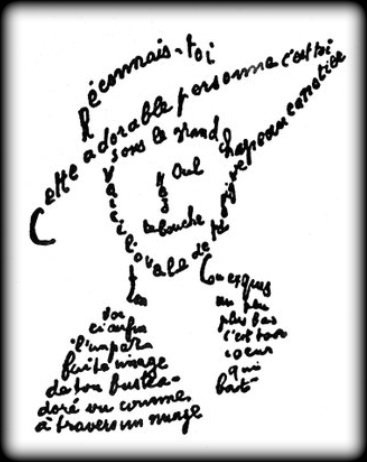 Reconnais-toi
Cette adorable personne c'est toi
Sous le grand chapeau canotier
Oeil
Nez
La bouche
Voici l'ovale de ta figure
Ton
Cou exquis
Voi
ci enfin
l'imparfa
ite image
de ton buste a-
doré vu comme
à travers un nuage
un peu
plus bas
c'est ton
coeur
qui
bat